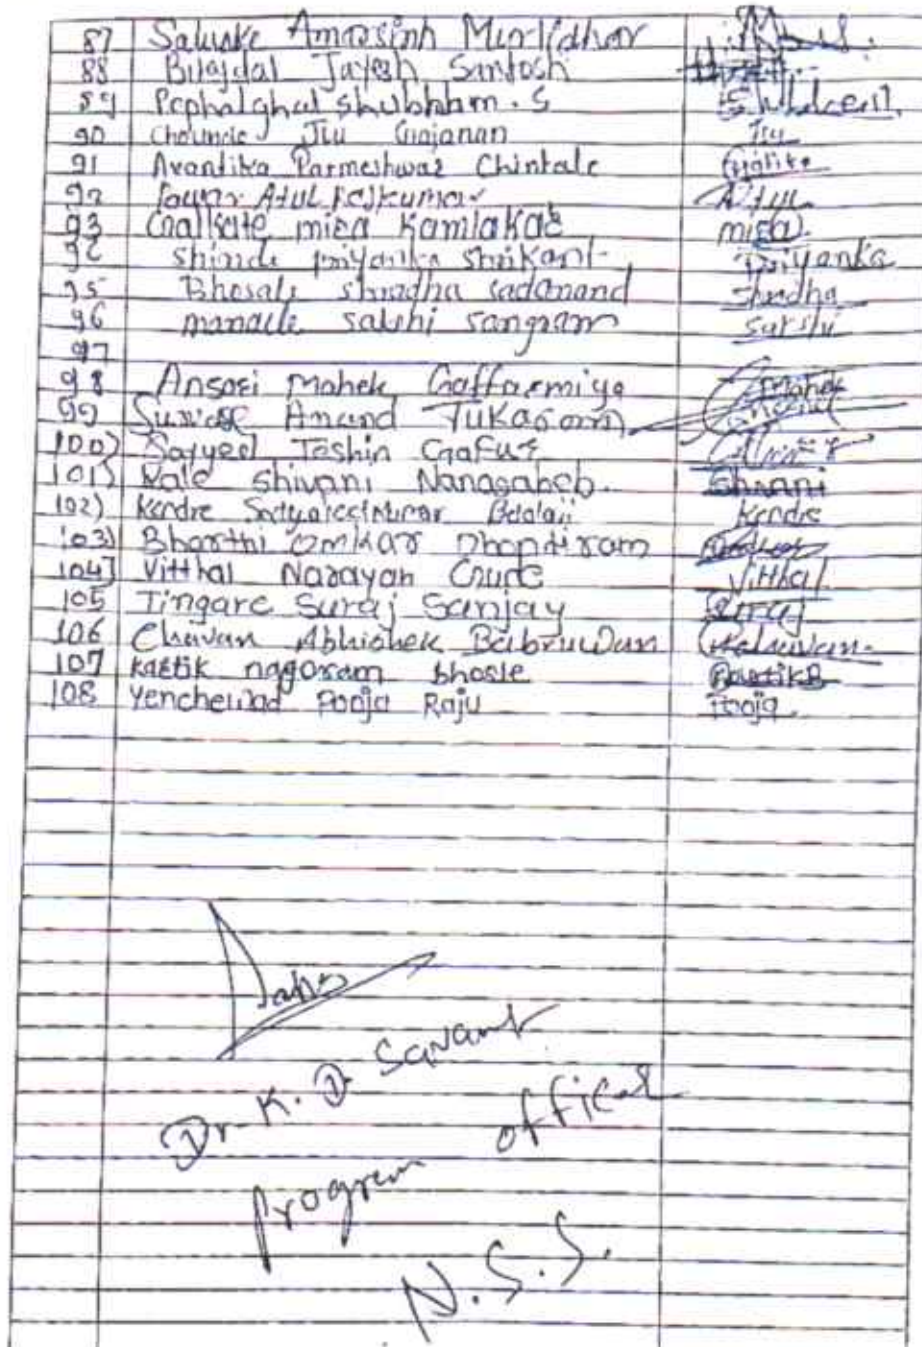 87 Salunke Amarsinh Murlidhar
88 Bilajdal Jayesh Santosh
89 Pephalghat Shubham. S
90 Jiu Gajanan Jiu
91 Avantika Parmeshwar Chintale
92 Pawar Atul Rajkumar Atul
93 mira Kamlakar mira
92 shinde priyanka shrikant Priyanka
95 Bhosale shradha sadanand shradha
96 sakshi sangram sakshi
97
98 Ansari Mahek Gaffarmiya Mahek
99 Anand Tukaram Anand
100) Sayyed Toshin Gafur
101) Kale Shivani Nanasaheb. Shivani
102) Kendre Balaji Kendre
103) Bharthi Omkar Dhondiram
104) Vitthal Narayan Vitthal
105 Tingare Suraj Sanjay Suraj
106 Chavan Abhishek Babruwan
107 kartik nagoram bhosle KartikB
108 Yenchewad Pooja Raju Pooja
Dr. K. D. Savant
program officer
N.S.S.